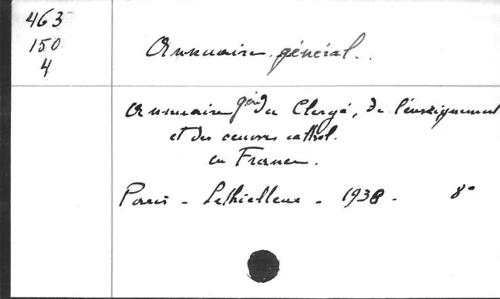 463
150
4
Annuaire général.
Annuaire gén du Clergé, de l'enseignement
et des œuvres cathol.
en France.
Paris - Lethielleux - 1938 - 8°